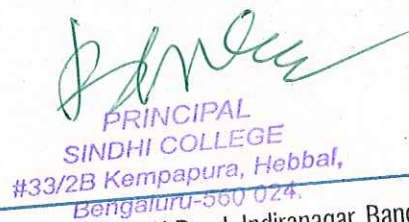 PRINCIPAL
SINDHI COLLEGE
#33/2B Kempapura, Hebbal,
Bengaluru-560 024.
Indiranagar, Bang